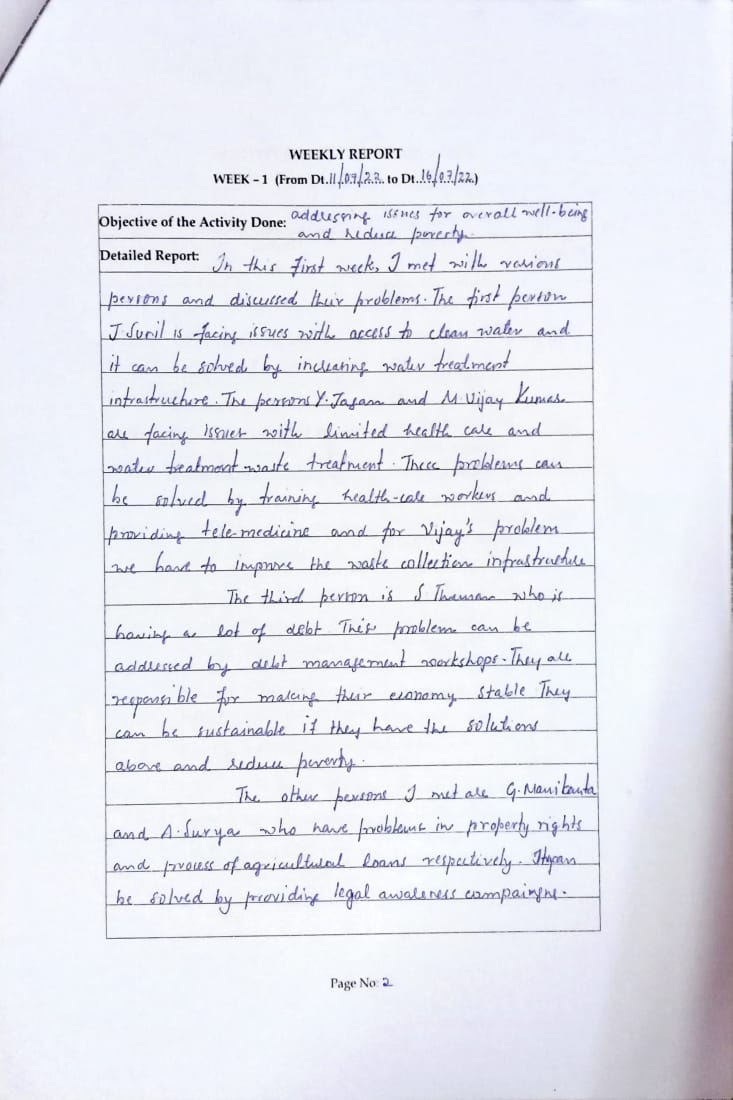 WEEKLY REPORT
WEEK – 1 (From Dt.11/07/22. to Dt..16/07/22.)
Objective of the Activity Done: addressing issues for overall well-being
and reduce poverty.
Detailed Report: In this first week, I met with various
persons and discussed their problems. The first person
J. Sunil is facing issues with access to clean water and
it can be solved by increasing water treatment
infrastructure. The persons Y. Jagan and M. Vijay Kumar
are facing issues with limited health care and
water treatment waste treatment. These problems can
be solved by training health-care workers and
providing tele-medicine and for Vijay's problem
we have to improve the waste collection infrastructure
The third person is S who is
having a lot of debt This problem can be
addressed by debt management workshops. They are
responsible for making their economy stable They
can be sustainable if they have the solutions
above and reduce poverty.
The other persons I met are G. Manikanta
and A. Surya who have problems in property rights
and process of agricultural loans respectively. It can
be solved by providing legal awareness campaigns.
Page No: 2